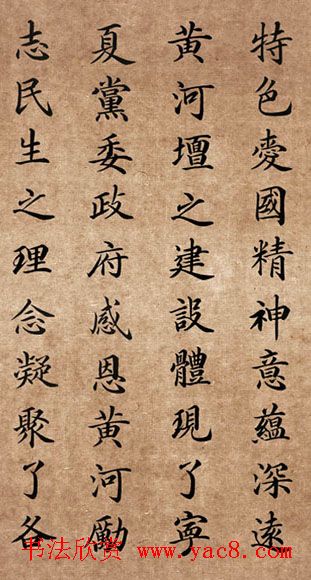 特色愛國精神意蘊深遠
黄河壇之建設體現了寧
夏黨委政府感恩黄河勵
志民生之理念凝聚了各
书法欣赏 www.yac8.com